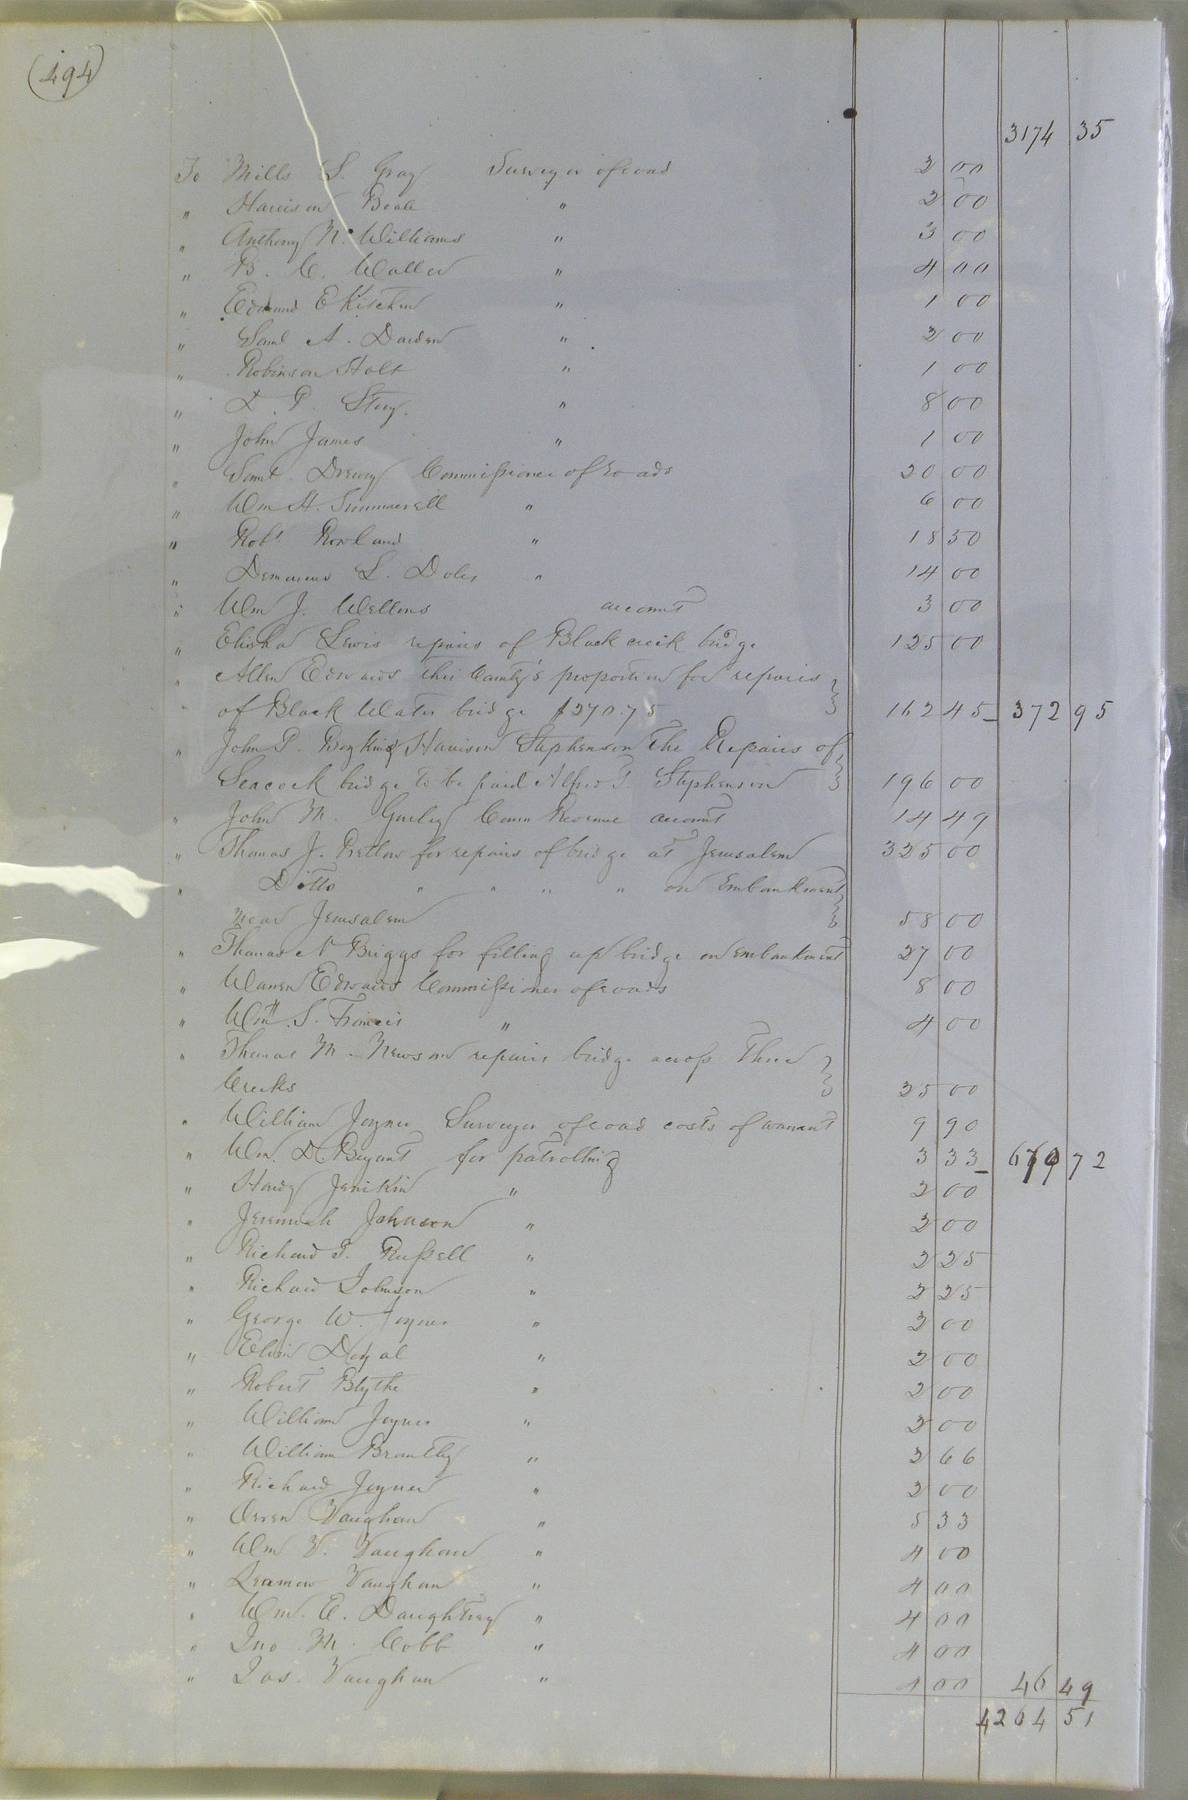 (494)
3174 35
To Mills S. Gray Surveyor of road 2 00
" Harrison Beale " 2 00
" Anthony N. Williams " 3 00
" B. C. Waller " 4 00
" Edmund E " 1 00
" Saml A. Darden " 2 00
" Robinson Holt " 1 00
" D. P. " 8 00
" John James " 1 00
" Saml. Drewry Commissioner of roads 20 00
" Wm H. Summerell " 6 00
" Robt Rowland " 18 50
" L. Doles " 14 00
" Wm J. Wellons account 3 00
" Elisha Lewis repairs of Black creek bridge 125 00
" Allen Edwards this County's proportion for repairs
" of Black Water bridge $270.75 162 45 372 95
" John P. Boykin & Harrison Stephenson The Repairs of
Seacock bridge to be paid Alfred T. Stephenson 196 00
" John M. Gurley Comr Revenue account 14 49
" Thomas J. Pretlow for repairs of bridge at Jerusalem 325 00
" Ditto " " " " on Embankment
near Jerusalem 58 00
" Thomas N Briggs for filling up bridge on embankment 27 00
" Warren Edwards Commissioner of roads 8 00
" Wm S. Francis " 4 00
" Thomas M. Newsom repairs bridge across Three
Creeks 25 00
" William Joyner Surveyor of road costs of warrant 9 90
" Wm. D. Bryant for patrolling 3 33 670 72
" Hardy Jenikin " 2 00
" Jeremiah Johnson " 2 00
" Richard T. Russell " 2 25
" Richard Johnson " 2 25
" George W. Joyner " 2 00
" Elvin Doyal " 2 00
" Robert Blythe " 2 00
" William Joyner " 2 00
" William Brantley " 2 66
" Richard Joyner " 2 00
" Orren Vaughan " 5 33
" Wm V. Vaughan " 4 00
" Vaughan " 4 00
" Wm. E. Daughtrey " 4 00
" Jno M. Cobb " 4 00
" Jas. Vaughan " 4 00 46 49
4264 51